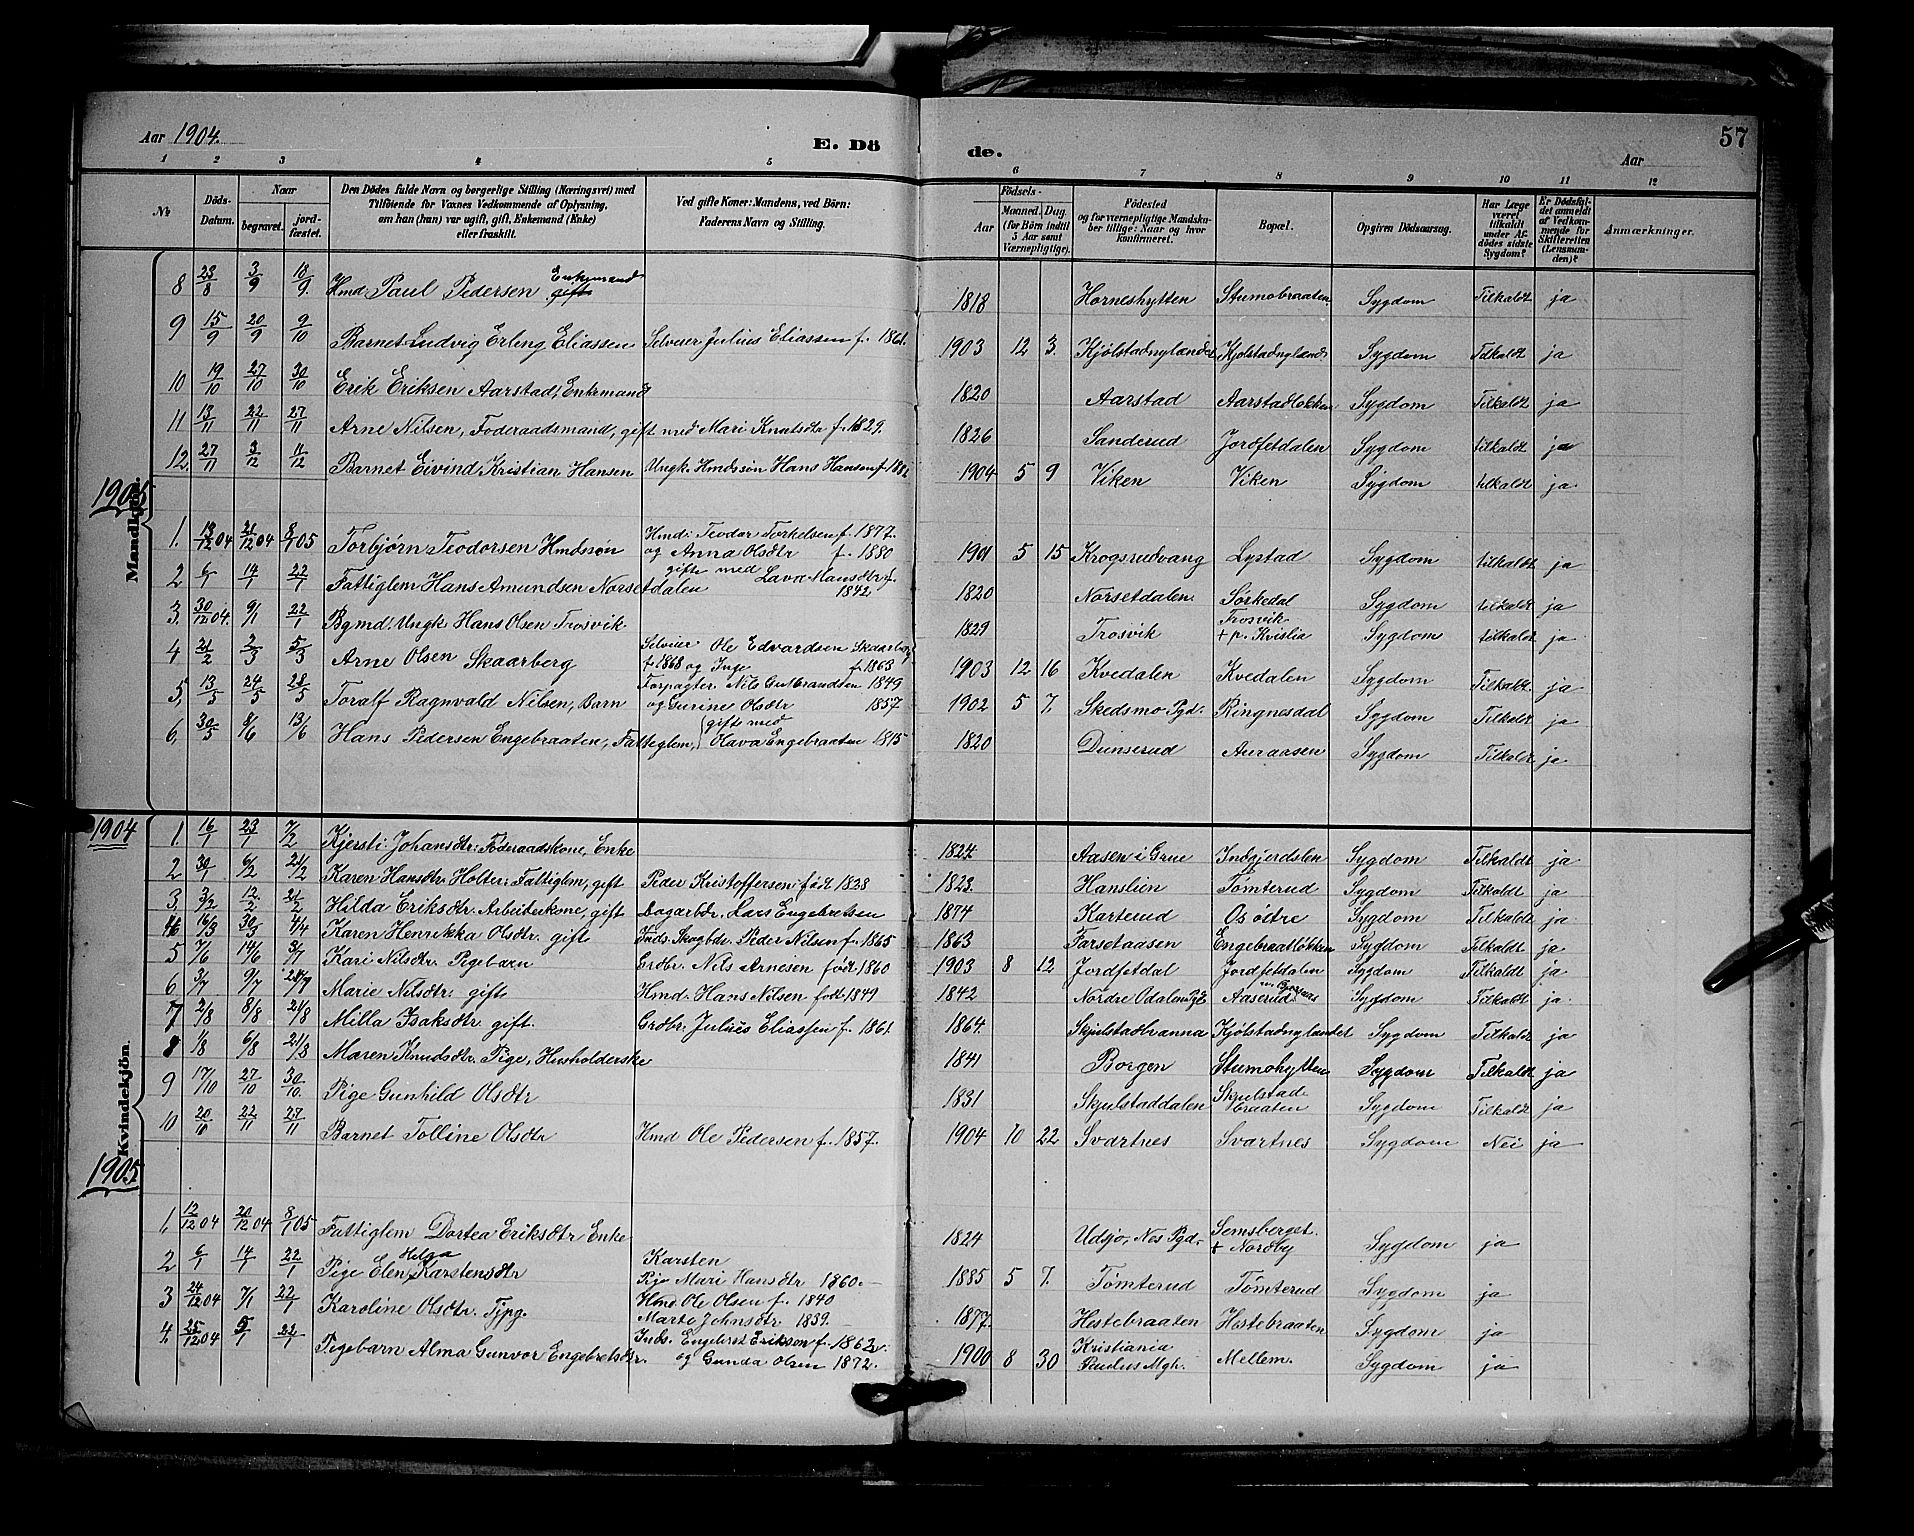 Aar 1904.
E. Dö
de.
57
Aar
1 2 3 4 5 6 7 8 9 10 11 12
№
Döds-Datum.
Naar
begravet.
jord-fæstet.
Den Dödes fulde Navn og borgerlige Stilling (Næringsvei) med
Tilföiende for Voxnes Vedkommende af Oplysning,
om han (hun) var ugift, gift, Enkemand (Enke)
eller fraskilt.
Ved gifte Koner: Mandens, ved Börn:
Faderens Navn og Stilling.
Födsels-
Aar
Maaned. Dag
(for Börn indtil
5 Aar samt
Værnepligtige).
Födested
og for værnepligtige Mandska-
ber tillige: Naar og hvor
konfirmeret.
Bopæl.
Opgiven Dödsaarsag.
Har Læge
været
tilkaldt
under Af-
dödes sidste
Sygdom?
Er Dödsfal-
det anmeldt
af Vedkom-
mende for
Skifteretten
(Lensman-
den)?
Anmærkninger.
Mandkjön.
8 23/8 3/9 18/9 Hmd Paul Pedersen gift Enkemand 1818 Horneshytten Stumobraaten Sygdom Tilkaldt ja
9 15/9 20/9 9/10 Barnet Ludvig Erling Eliassen Selveier Julius Eliassen f. 1861. 1903 12 3. Kjølstadnylandet Kjølstadnyland Sygdom Tilkaldt ja
10 19/10 27/10 30/10 Erik Eriksen Aarstad, Enkemand 1820 Aarstad Aarstadløkken Sygdom Tilkaldt ja
11 13/11 22/11 27/11 Arne Nilsen, Föderaadsmand, gift med Mari Knutsdtr f. 1829. 1826 Sanderud Jordfetdalen Sygdom tilkaldt ja
12. 27/11 3/12 11/12 Barnet Eivind Kristian Hansen Ungk. Hmdssøn Hans Hansen f 1904 5 9 Viken Viken Sygdom tilkaldt ja
1905
1. 18/12 04 21/12 04 8/1 05 Torbjørn Teodorsen Hmdssøn Hmd: Teodor Torkelsen f. 1877.
og Anna Olsdtr f. 1880 1901 5 15 Krogsrudvang Lystad Sygdom tilkaldt ja
2 6/1 14/1 22/1 Fattiglem Hans Amundsen Norsetdalen gift med Lava Hansdtr f.
1842 1820 Norsetdalen Sørkedal Sygdom tilkaldt ja
3. 30/12 04. 9/1 22/1 Bgmd. Ungk Hans Olsen Trosvik 1829 Trosvik Trosvik
+ p. Kvislia Sygdom tilkaldt ja
4 21/2 2/3 5/3 Arne Olsen Skaarberg Selveier Ole Edvardsen Skaarberg
f. 1868 og Inge f. 1863 1903 12 16 Kvedalen Kvedalen Sygdom Tilkaldt. ja
5, 13/5 24/5 28/5 Toralf Ragnvald Nilsen, Barn Forpagter Nils Gulbrandsen 1849
og Gurine Olsdtr 1857 1902 5 7. Skedsmo Pgd. Ringnesdal Sygdom Tilkaldt ja
6, 30/5 8/6 13/6 Hans Pedersen Engebraaten, Fattiglem, (gift med
Olava Engebraaten 1815 1820 Dunserud Auraasen Sygdom Tilkaldt ja
Kvindekjön.
1904
1. 16/1 23/1 7/2 Kjersti Johansdtr: Föderaadskone, Enke 1824 Aasen i Grue Indgjerdslen Sygdom Tilkaldt ja
2 30/1 6/2 21/2 Karen Hansdtr Holter: Fattiglem, gift Peder Kristoffersen: født 1828 1823. Hanslien Tømterud Sygdom Tilkaldt ja
3, 3/2 12/2 21/2 Hilda Eriksdtr. Arbeiderkone, gift Dagarbdr. Lars Engebretsen 1874 Karterud Osödtre Sygdom Tilkaldt ja
4 16/3 30/3 4/4 Karen Henrikka Olsdtr. gift Inds. Skogbdr. Peder Nilsen f. 1865 1863 Farsetaasen Engebraatløkken Sygdom Tilkaldt ja
5 7/6 14/6 3/7 Kari Nilsdtr. Pigebarn Grdbr. Nils Arnesen født 1860 1903 8 12 Jordfetdal Jordfetdalen Sygdom Tilkaldt ja
6 3/7 9/7 24/7 Marie Nilsdtr: gift Hmd. Hans Nilsen født 1849 1842 Nordre Odalen Pgd Aaserud Sygdom Tilkaldt ja.
7 2/8 8/8 21/8 Milla Isaksdtr. gift. Grdbr. Julius Eliassen f. 1861. 1864. Skjulstadbranna Kjølstadnylandet Sygdom Tilkaldt ja
8 1/8 6/8 21/8 Maren Knudsdtr. Pige, Husholderske 1841 Borgen Stumohytten Sygdom Tilkaldt ja
9 17/10 27/10 30/10. Pige Gunhild Olsdtr 1831 Skjulstaddalen Skjulstad-
braaten Sygdom Tilkaldt ja
10 20/10 22/11 27/11 Barnet Tolline Olsdtr Hmd Ole Pedersen f. 1857. 1904 10 22 Svartnes Svartnes Sygdom Nei ja
1905
1, 12/12 04 20/12 04 8/1 05 Fattiglem Dortea Eriksdtr Enke 1824 Udsjo, Nes Pgd. Semsberget.
+ Nordby Sygdom ja
2 6/1 14/1 22/1 Pige Elen Helga Karstensdtr Karsten
Pige Mari Hansdtr 1860. 1885 5 7. Tømterud Tømterud Sygdom ja
3 24/12 04 7/1 22/1 Karoline Olsdtr. Tjpg. Hmd Ole Olsen f. 1840
Marte Johnsdtr 1839. 1877. Hestebraaten Hestebraaten Sygdom ja
4. 25/12 04 5/1 22/1 Pigebarn Alma Gunvor Engebretsdtr. Inds. Engebret Eriksen f. 1862
og Gunda Olsen 1872. 1900 8 30 Kristiania
Paulus Mgh. Mellem. Sygdom ja